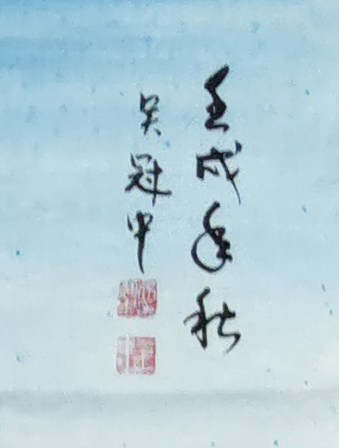 壬戌年秋
吴冠中